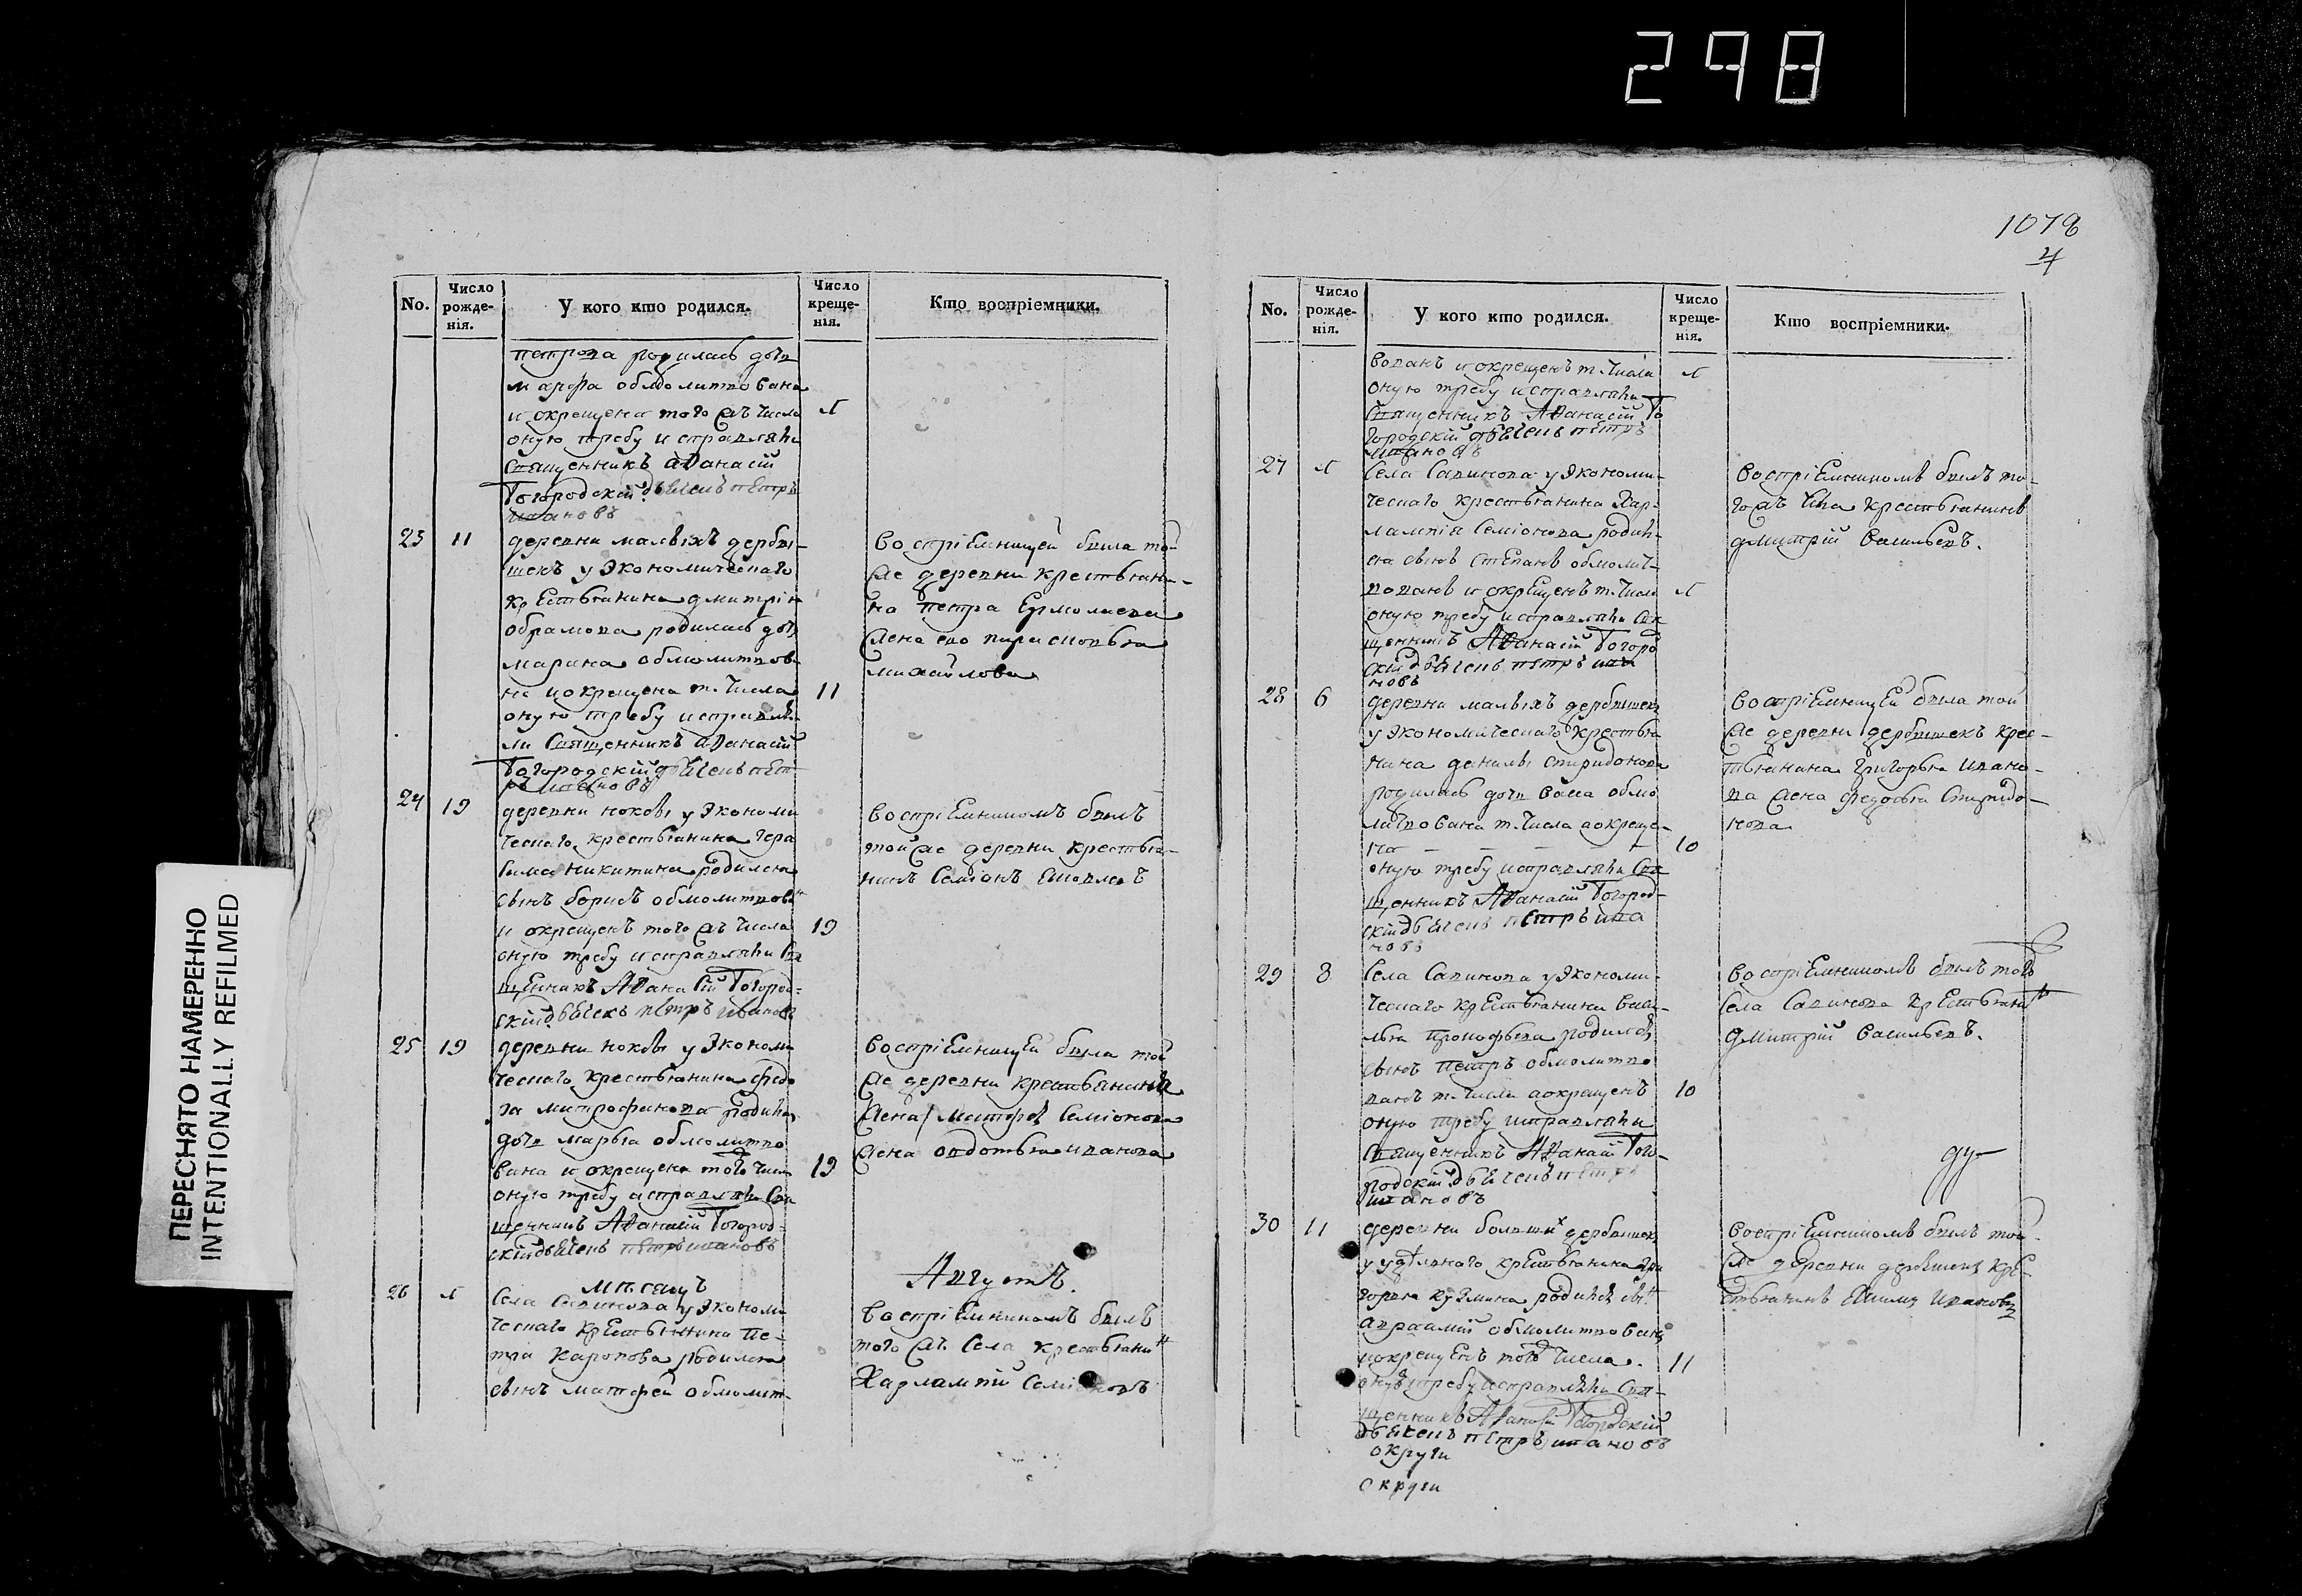 298
1078
4
ПЕРЕСНЯТО НАМЕРЕННО
INTENTIONALLY REFILMED
No.
Число рожде-нія.
У кого кто родился.
Число креще-нія.
Кто воспріемники.
петрова родилась дочь
марфа обмолитвована
и окрещена того жъ числа
оную требу исправляли
священникъ аѳанасій
Богородскій дьячекъ петръ
ивановъ
23 11
деревни малыхъ дербы-
шекъ у Экономическаго
крестьянина дмитрія
абрамова родилась дочь
марина обмолитвов
на и окрещена т. числа 11
оную требу исправля
ли Священникъ аѳанасій
Богородскій дьячекъ пет
ръ ивановъ
воспріемницей была той
же деревни крестьяни-
на петра Ермолаева
жена
михайлова
24 19
деревни ноксы у Экономи
ческаго крестьянина гера
сима никитина родился
сынъ борисъ обмолитвов
и окрещенъ того жъ числа 19
оную требу исправляли Свя
щенникъ Аѳанасій Богород-
скій дьячекъ петръ ивановъ
воспріемникомъ былъ
той же деревни крестья-
нинъ Семіонъ
25 19
деревни ноксы у Экономи
ческаго крестьянина
митрофанова родилась
дочь марья обмолитво
вана и окрещена того числа 19
оную требу исправляли Свя
щенникъ Аѳанасій Богород-
скій дьячекъ петръ ивановъ
воспріемницей была той
же деревни крестьянина
Семіонова
жена авдотья иванова
мѣсяцъ Августъ.
26
Села Савинова у Экономи
ческаго крестьянина пе-
тра Карпова родился
сынъ матфей обмолит-
воспріемникомъ былъ
того жъ Села крестьянин
Харлампій Семіоновъ
No.
Число рожде-нія.
У кого кто родился.
Число креще-нія.
Кто воспріемники.
вованъ и окрещенъ т. числа
оную требу исправляли
Священникъ Аѳанасій Бо
городскій дьячекъ петръ
ивановъ
27
Села Савинова у Экономи-
ческаго крестьянина Хар-
лампія Семіонова родил-
ся сынъ Степанъ обмолит-
вованъ и окрещенъ т. числа
оную требу исправляли Свя
щенникъ Аѳанасій Богород
скій дьячекъ петръ ива
новъ
воспріемникомъ былъ то-
го жъ села крестьянинъ
дмитрій васильевъ.
28 6
деревни малыхъ дербышекъ
у Экономическаго крестья
нина данилы спиридонова
родилась дочь васа обмо
литвована т. числа а окреще-
на 10
оную требу исправляли Свя
щенникъ Аѳанасій Богород-
скій дьячекъ петръ ива
новъ
воспріемницей была той
же деревни дербышекъ крес-
тьянина григорья ивано-
ва жена федосья Спиридо-
нова
29 8
Села Савинова у Экономи-
ческаго крестьянина васи-
лья прокофьева родился
сынъ петръ обмолитво
ванъ т. числа а окрещенъ 10
оную требу исправляли
Священникъ Аѳанасій Бого-
родскій дьячекъ петръ
ивановъ
воспріемникомъ былъ того
села Савинова крестьянин
дмитрій васильевъ.
ду-
30 11
деревни большихъ дербышекъ
у удѣльнаго крестьянина гри
горья кузмина родился сын
авраамій обмолитвованъ
и окрещенъ того числа. 11
оную требу исправляли Свя-
щенникъ Аѳанасій Богородскій
дьячекъ петръ ивановъ
округи
округи
воспріемникомъ былъ той
же деревни дербышекъ кре-
стьянинъ ивановъ